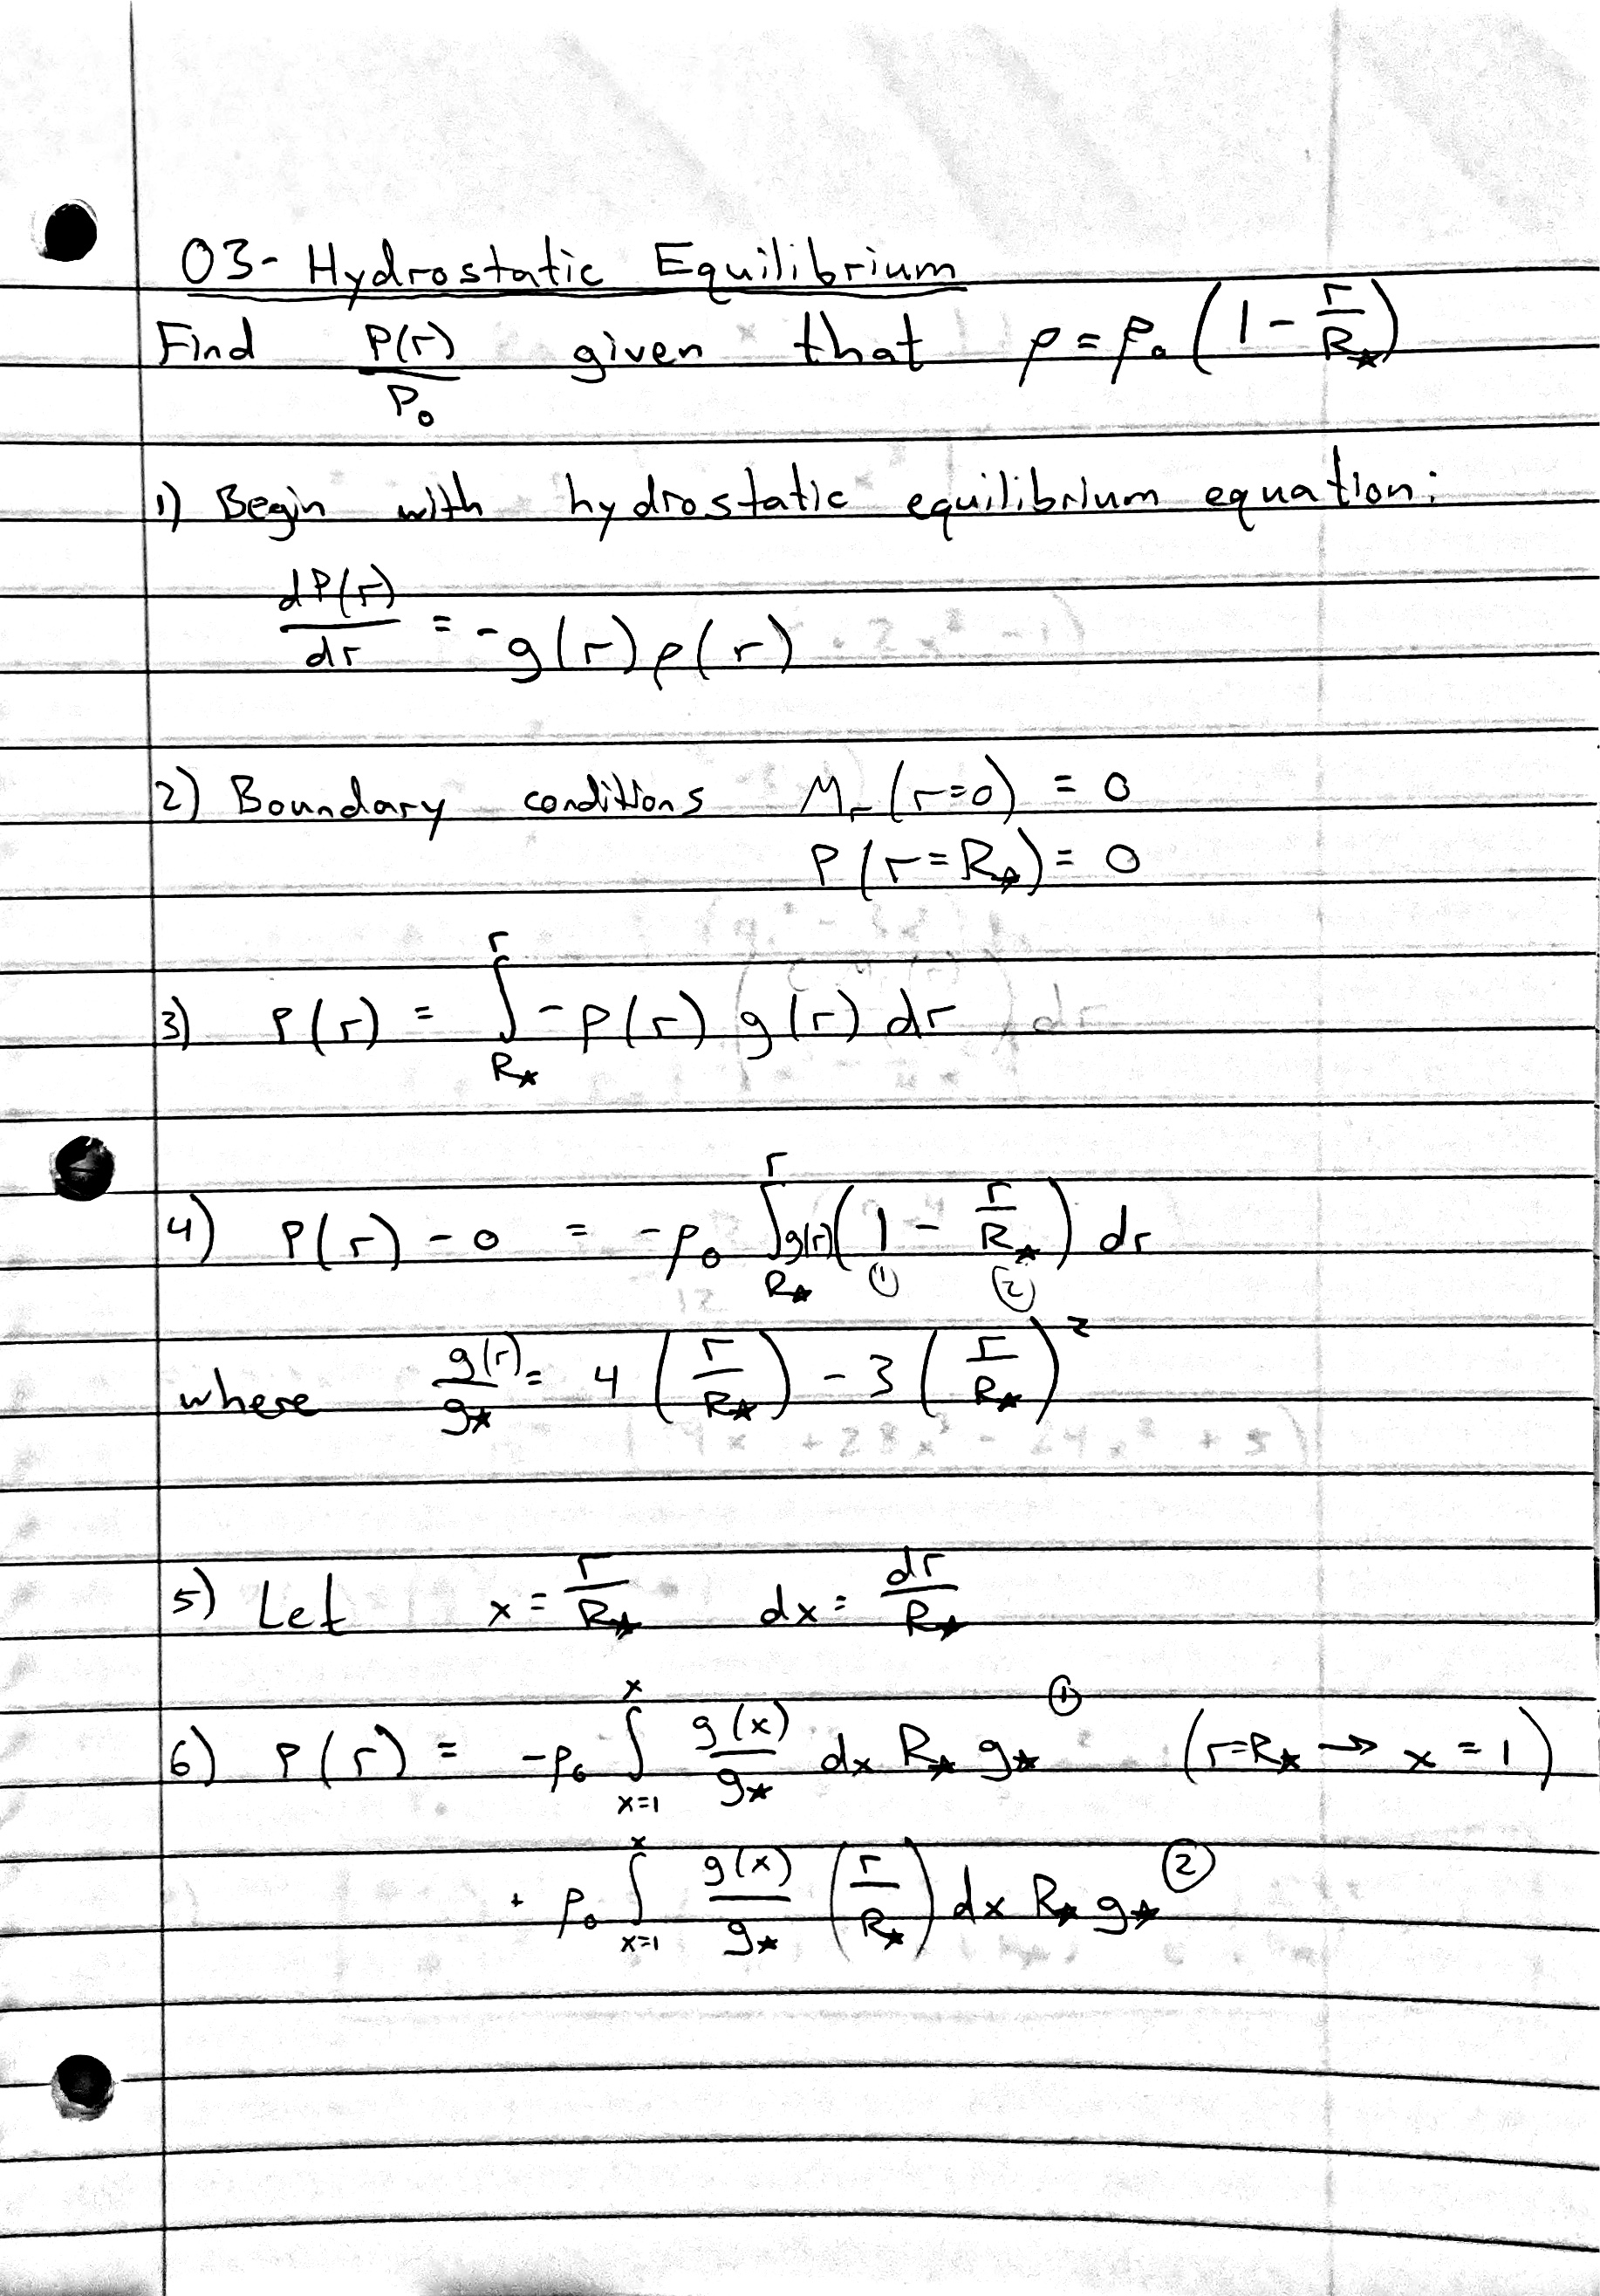 03- Hydrostatic Equilibrium
Find P(r)/P₀ given that ρ = ρ₀ (1 - r/R★)
1) Begin with hydrostatic equilibrium equation:
dP(r)/dr = -g(r) ρ(r)
2) Boundary conditions Mᵣ (r=0) = 0
P (r=R★) = 0
3) P(r) = ∫_{R★}^{r} -ρ(r) g(r) dr
4) P(r) - 0 = -ρ₀ ∫_{R★}^{r} g(r) (1 - r/R★) dr
① ②
where g(r)/g★ = 4 (r/R★) - 3 (r/R★)²
5) Let x = r/R★ dx = dr/R★
6) P(r) = -ρ₀ ∫_{x=1}^{x} g(x)/g★ dx R★ g★ ① (r=R★ → x = 1)
+ ρ₀ ∫_{x=1}^{x} g(x)/g★ (r/R★) dx R★ g★ ②